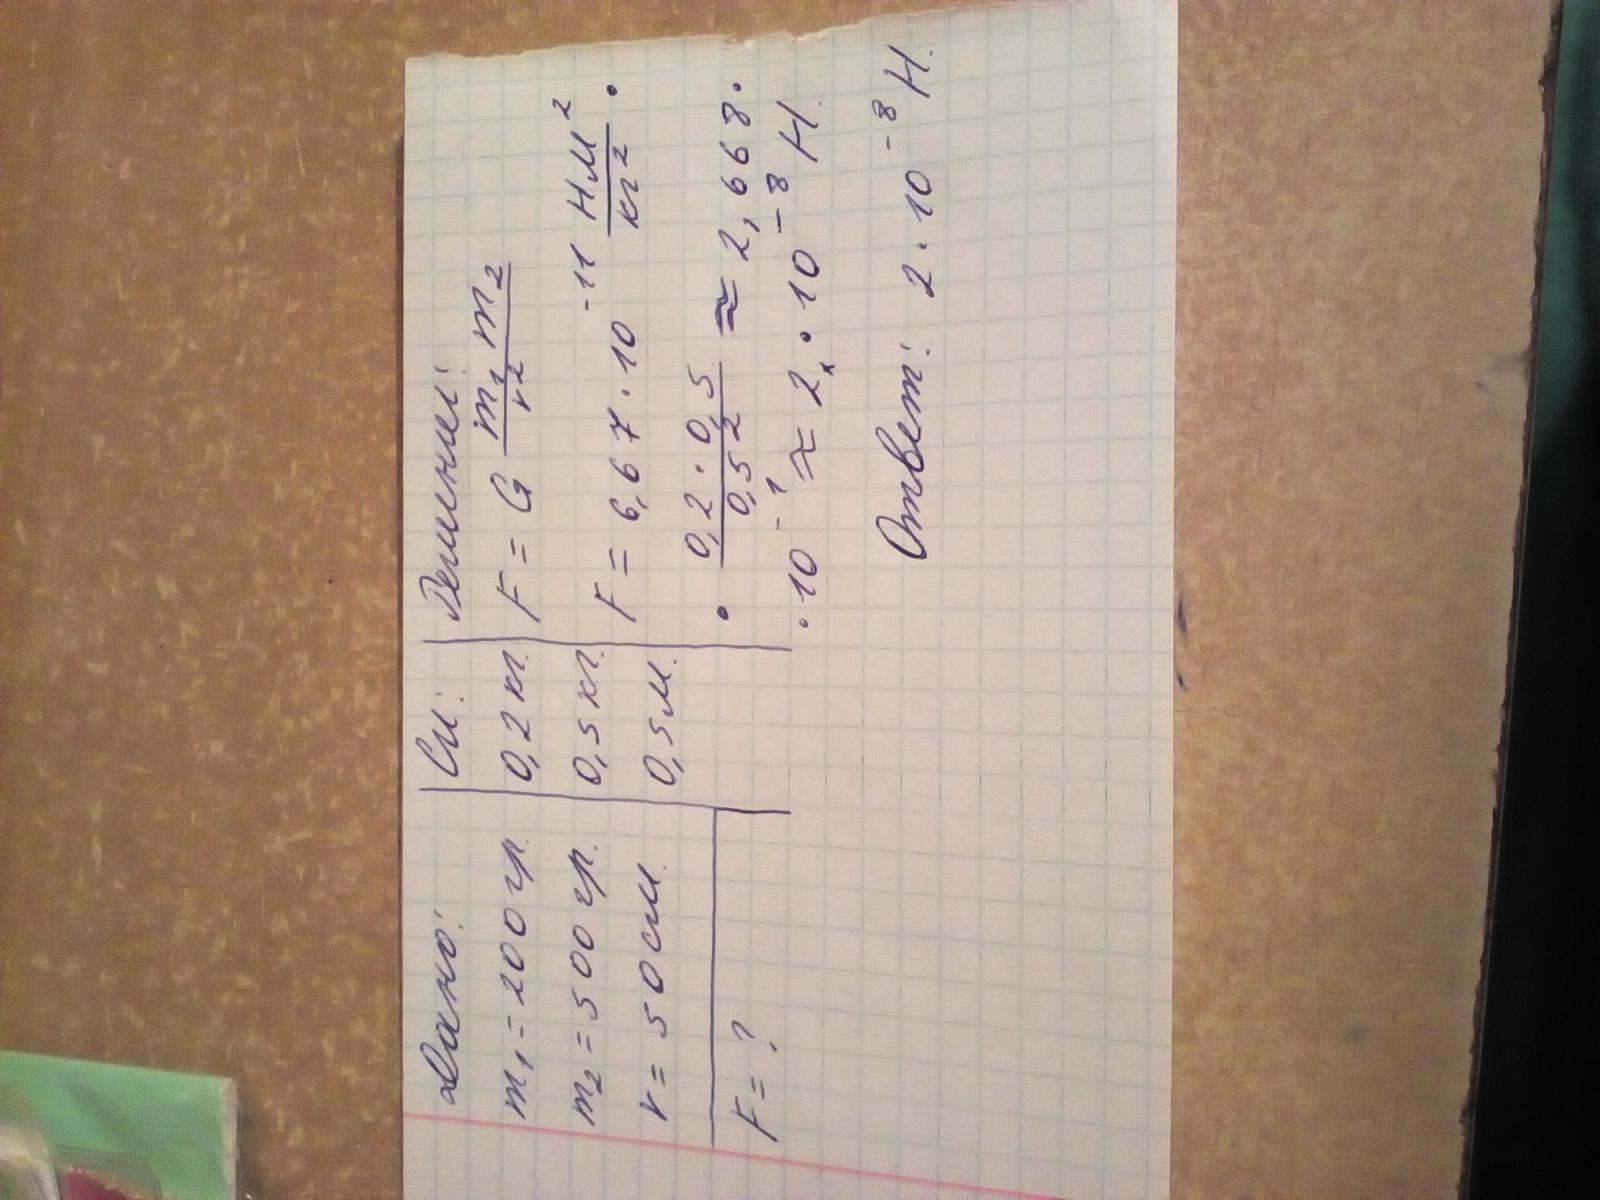 Дано:
m₁ = 200 гр.
m₂ = 500 гр.
r = 50 см.
F = ?
Си:
0,2 кг.
0,5 кг.
0,5 м.
Решение:
F = G m₁ m₂ / r²
F = 6,67 · 10⁻¹¹ Нм² / кг² ·
· 0,2 · 0,5 / 0,5² ≈ 2,668 ·
· 10⁻¹ ≈ 2, · 10⁻⁸ Н.
Ответ: 2 · 10⁻⁸ Н.